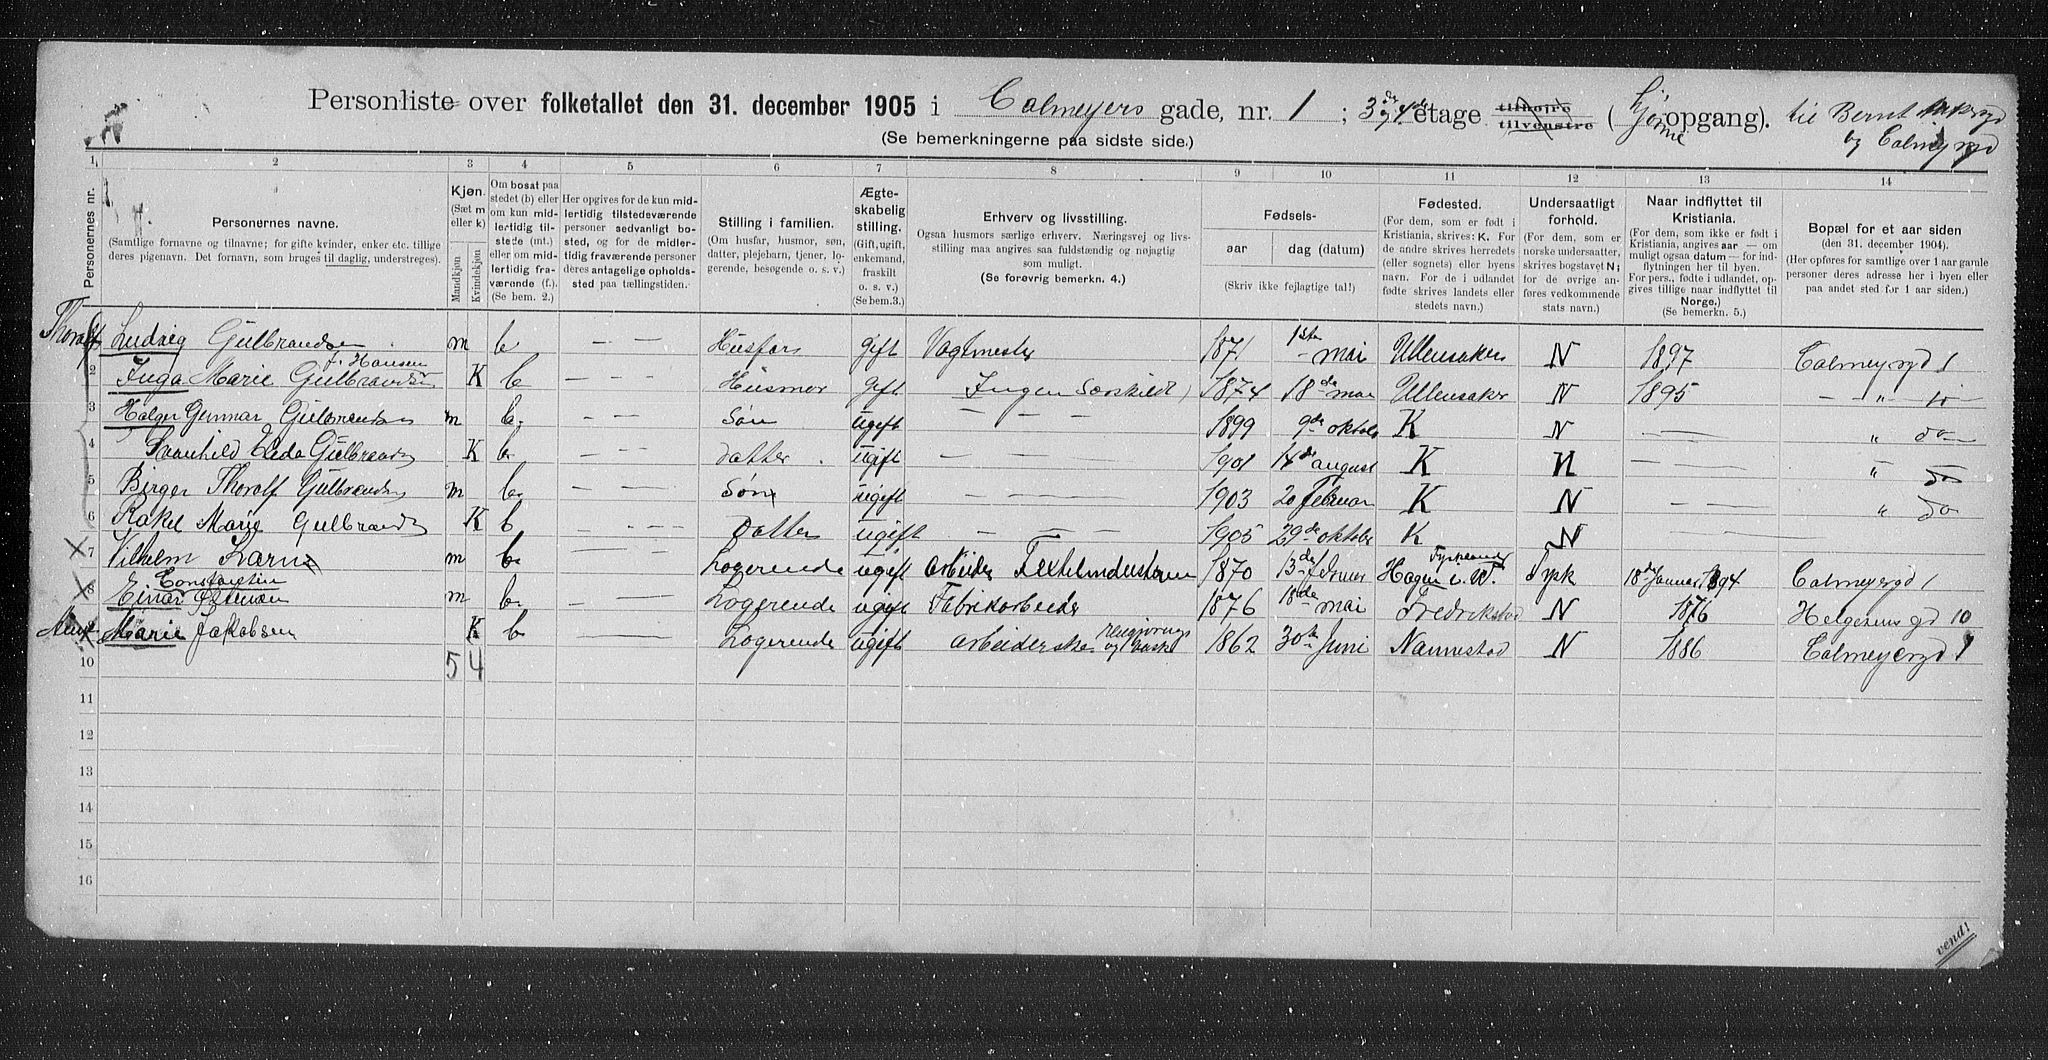 Personliste over folketallet den 31. december 1905 i Calmeyers gade, nr. 1 ; 3de 4de etage tilhøire tilvenstre ( Hjørne opgang). til Bernt Ankersgd
(Se bemerkningerne paa sidste side.) og Calmeyergd
1 2 3 4 5 6 7 8 9 10 11 12 13 14
Personernes nr.
Personernes navne.
(Samtlige fornavne og tilnavne; for gifte kvinder, enker etc. tillige
deres pigenavn. Det fornavn, som bruges til daglig, understreges).
Kjøn.
(Sæt m
eller k)
Mandkjøn
Kvindekjøn
Om bosat paa
stedet (b) eller
om kun mid-
lertidig til-
stede (mt.)
eller om mid-
lertidig fra-
værende (f.)
(Se bem. 2.)
Her opgives for de kun mid-
lertidig tilstedeværende
personer sedvanligt bo-
sted, og for de midler-
tidig fraværende personer
deres antagelige opholds-
sted paa tællingstiden.
Stilling i familien.
(Om husfar, husmor, søn,
datter, plejebarn, tjener, lo-
gerende, besøgende o. s. v.)
Ægte-
skabelig
stilling.
(Gift, ugift,
enkemand,
fraskilt
o. s. v.)
(Se bem.3.)
Erhverv og livsstilling.
Ogsaa husmors særlige erhverv. Næringsvej og livs-
stilling maa angives saa fuldstændig og nøjagtig
som muligt.
(Se forøvrig bemerkn. 4.)
Fødsels-
aar dag (datum)
(Skriv ikke fejlagtige tal!)
Fødested.
(For dem, som er født i
Kristiania, skrives: K. For
de andre skrives herredets
(eller sognets) eller byens
navn. For de i udlandet
fødte skrives landets eller
stedets navn.)
Undersaatligt
forhold.
(For dem, som er
norske undersaatter,
skrives bogstavet N;
for de øvrige an-
føres vedkommende
stats navn.)
Naar indflyttet til
Kristiania.
(For dem, som ikke er født i
Kristiania, angives aar — om
muligt ogsaa datum — for ind-
flytningen her til byen.
For pers., fødte i udlandet, op-
gives tillige naar indflyttet til
Norge.)
(Se bemerkn. 5.)
Bopæl for et aar siden
(den 31. december 1904).
(Her opføres for samtlige over 1 aar gamle
personer deres adresse her i byen eller
paa andet sted for 1 aar siden.)
Thoralf Ludvig Gulbrandsen m b — — Husfar gift Vogtmester 1871 1ste mai Ullensaker N 1897 Calmeyergd 1
f. Hansen
2 Inga Marie Gulbrandsen K b — — Husmor gift Ingen Særskildt 1874 18de mai Ullensaker N 1895 — " 1o —
3 Holger Gunnar Gulbrandsen m b. — — Søn ugift — — — 1899 9de oktober K N — — " do —
4 Ragnhild Elida Gulbrandsen K b. — — datter ugift — — — 1901 14de august K N — — " do
5 Birger Thorolf Gulbrandsen m b. — — Søn ugift — — — 1903 20 Februar K N — — " do
6 Rakel Marie Gulbrandsen K b — — Datter ugift — — — 1905 29de oktober K N — — " do
7 Vilhelm m b. — — Logerende ugift Arbeider Textilindustrien 1870 13de Hagen i. W. Tyskland Tysk 18de Januar 1894 Calmeyergd 1
Constantin
8 Einar Østensen m b. — — Logerende ugift Fabrikarbeider 1876 18de mai Fredrikstad N 1876 Helgesens gd 10
9 Marie Jakobsen K b — — Logerende ugift Arbeiderske Rengjørings og Vask 1862 30te Juni Nannestad N 1886 Calmeyergd 1
10 5 4
11
12
13
14
15
16
vend!